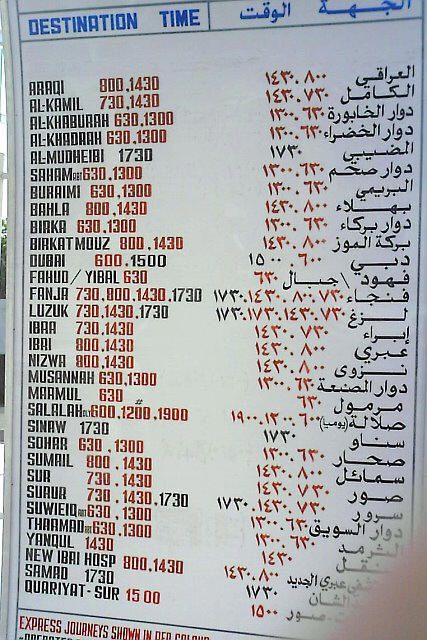 DESTINATION TIME الجهة الوقت
ARAQI 800,1430 ١٤٣٠،٨٠٠ العراقي
AL-KAMIL 730,1430 ١٤٣٠،٧٣٠ الكامل
AL-KHABURAH 630,1300 ١٣٠٠،٦٣٠ دوار الخابورة
AL-KHADRAH 630,1300 ١٣٠٠،٦٣٠ دوار الخضراء
AL-MUDHEIBI 1730 ١٧٣٠ المضيبي
SAHAM RBT 630,1300 ١٣٠٠،٦٣٠ دوار صحم
BURAIMI 630,1300 ١٣٠٠،٦٣٠ البريمي
BAHLA 800,1430 ١٤٣٠،٨٠٠ بهلاء
BIRKA 630,1300 ١٣٠٠،٦٣٠ دوار بركاء
BIRKAT MOUZ 800,1430 ١٤٣٠،٨٠٠ بركة الموز
DUBAI 600,1500 ١٥٠٠،٦٠٠ دبي
FAHUD / YIBAL 630 ٦٣٠ فهود \ جبال
FANJA 730,800,1430,1730 ١٧٣٠،١٤٣٠،٨٠٠،٧٣٠ فنجاء
LUZUK 730,1430,1730 ١٤٣٠،٧٣٠ لزغ
IBRA 730,1430 ١٤٣٠،٧٣٠ إبراء
IBRI 800,1430 ١٤٣٠،٨٠٠ عبري
NIZWA 800,1430 ١٤٣٠،٨٠٠ نزوى
MUSANNAH 630,1300 ١٣٠٠،٦٣٠ دوار المصنعة
MARMUL 630 ٦٣٠ مرمول
SALALAH DLY 600,1200,1900 # ١٩٠٠،١٢٠٠،٦٠٠ صلالة (يوميا)
SINAW 1730 ١٧٣٠ سناو
SOHAR 630,1300 ١٣٠٠،٦٣٠ صحار
SUMAIL 800,1430 ١٤٣٠،٨٠٠ سمائل
SUR 730,1430 ١٤٣٠،٧٣٠ صور
SURUR 730,1430,1730 ١٧٣٠،١٤٣٠،٧٣٠ سرور
SUWEIQ RBT 630,1300 ١٣٠٠،٦٣٠ دوار السويق
THARMAD RBT 630,1300 ١٣٠٠،٦٣٠ الثرمد
YANQUL 1430 ١٤٣٠
NEW IBRI HOSP 800,1430 ١٤٣٠،٨٠٠ عبري الجديد
SAMAD 1730 ١٧٣٠ الشان
QURIYAT-SUR 1500 ١٥٠٠ صور
EXPRESS JOURNEYS SHOWN IN RED COLOUR